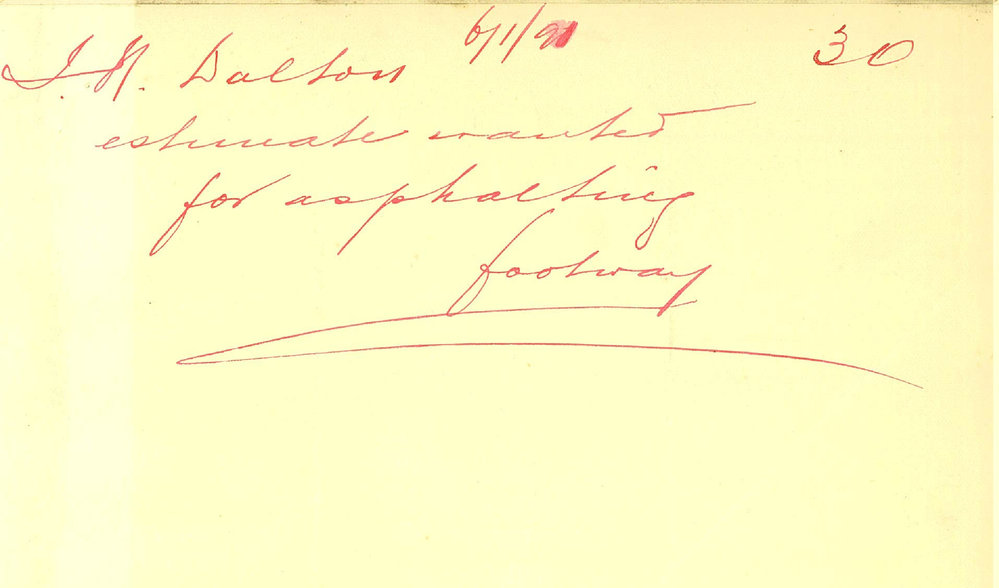 J. H. Dalton 6/1/91 30
estimate wanted
for asphalting
footway